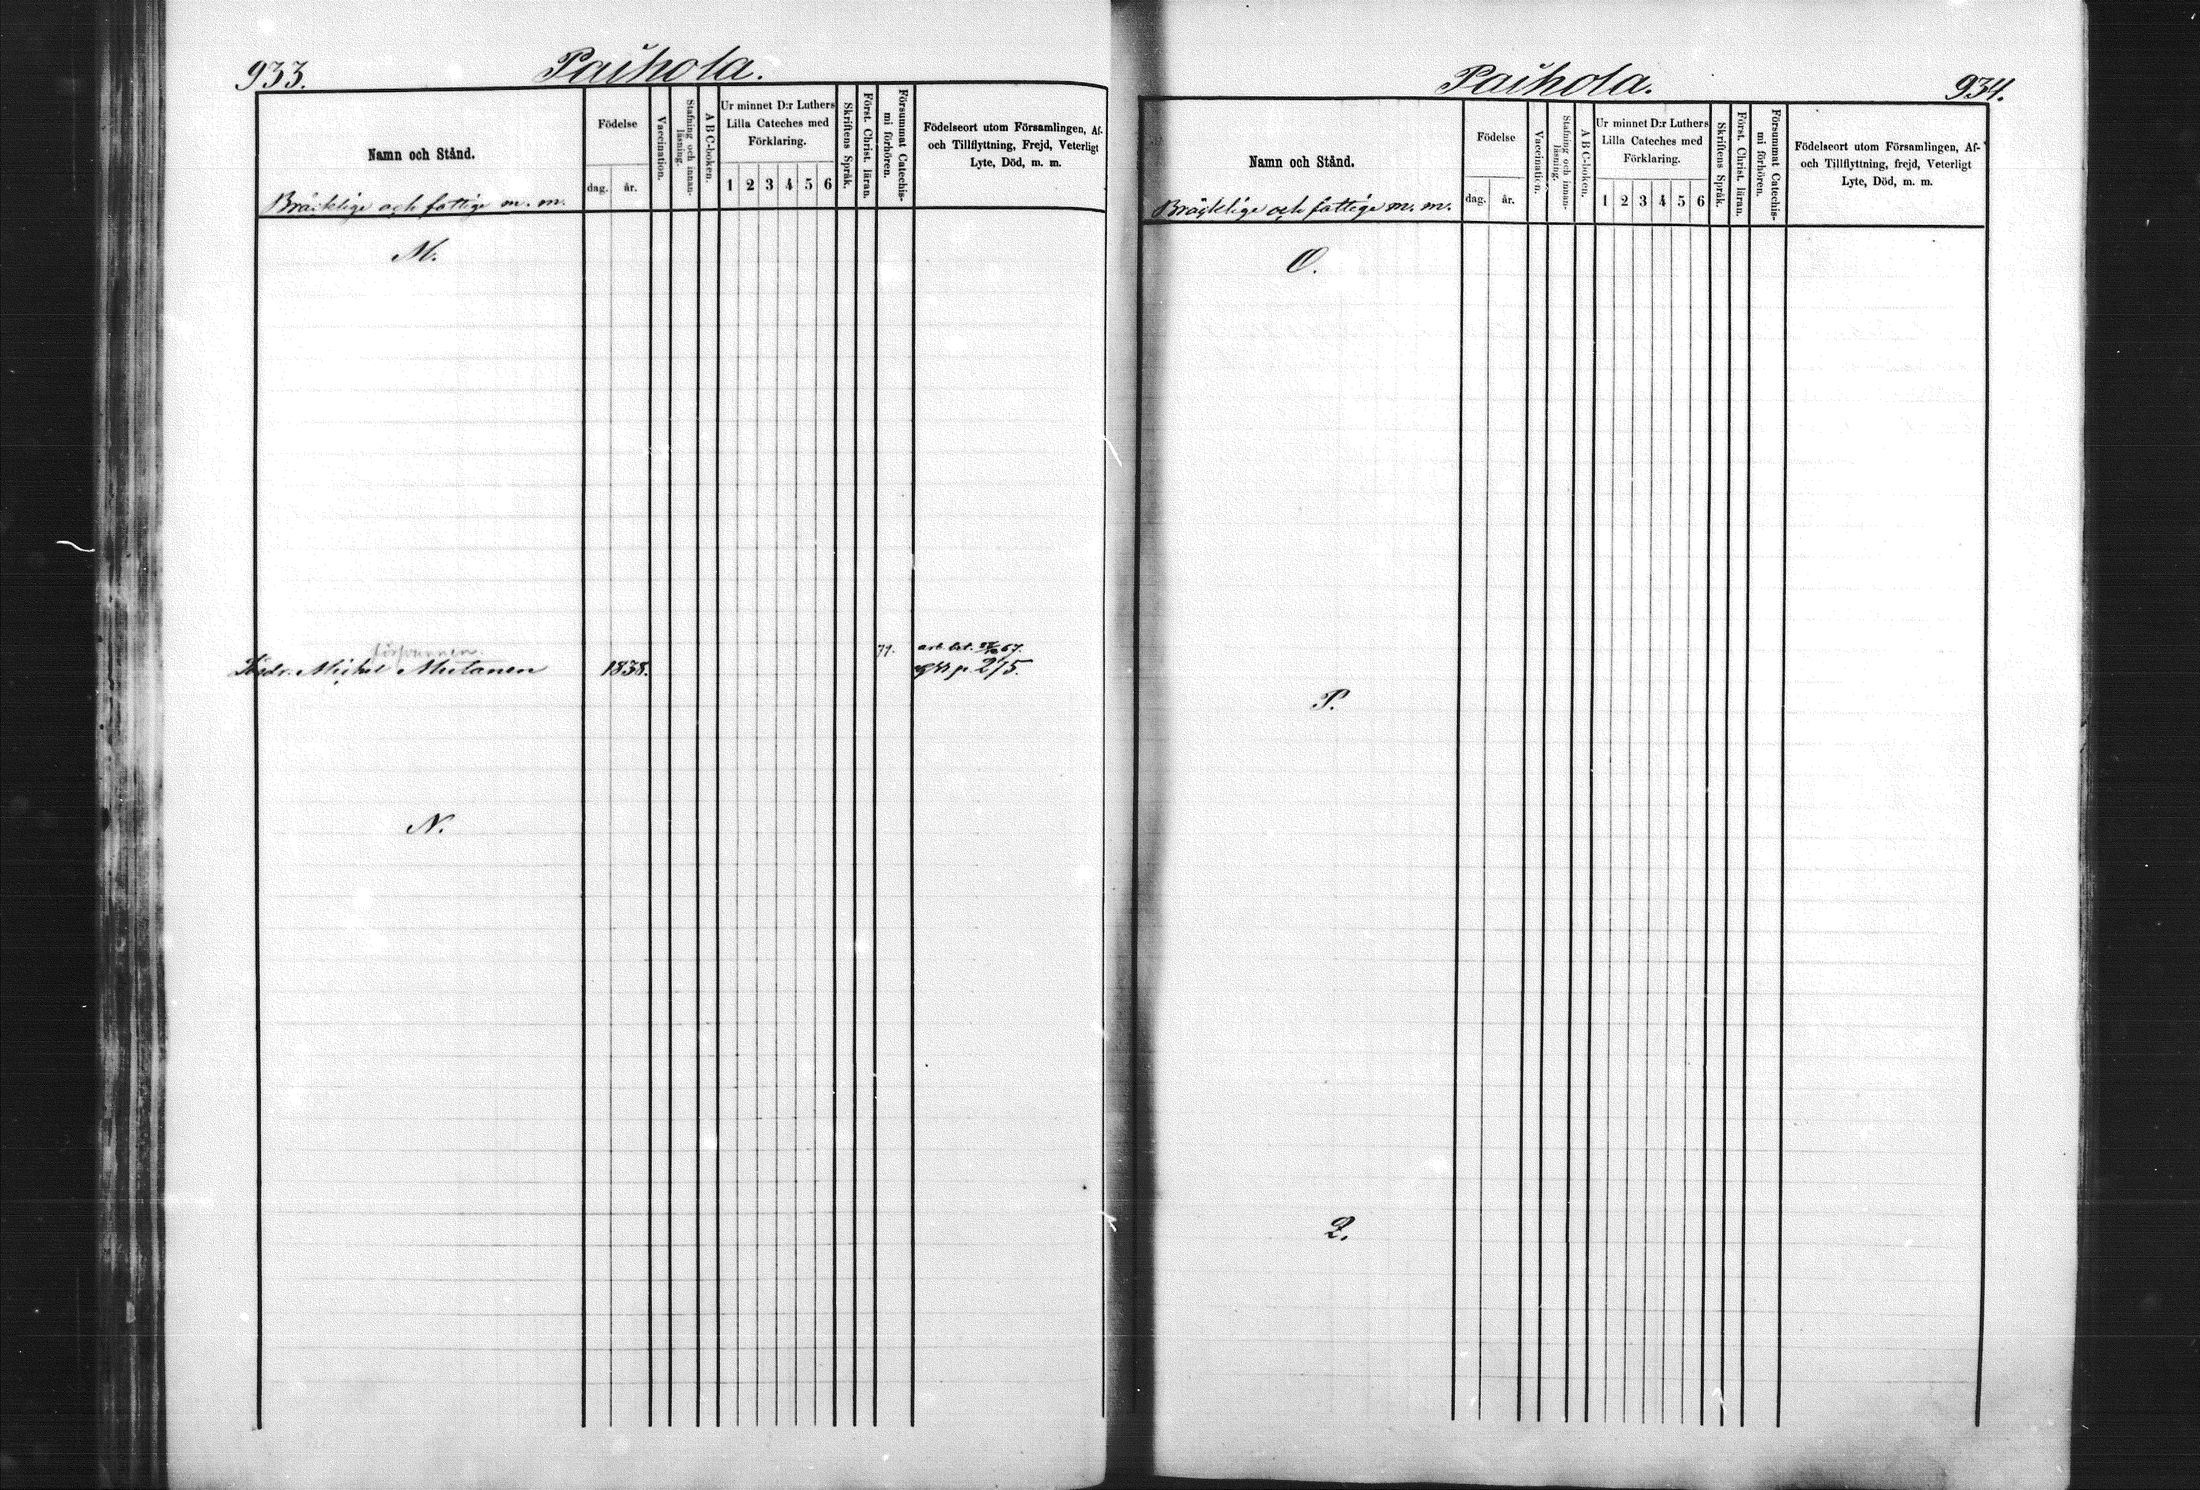 933.
Paihola.
Namn och Stånd.
Bräcklige och fattige m. m.
Födelse
dag.
år.
Vaccination.
Stafning och innan-
läsning.
A B C-boken.
Ur minnet D:r Luthers
Lilla Cateches med
Förklaring.
1 2 3 4 5 6
Skriftens Språk.
Först. Christ. läran.
Försummat Catechis-
mi förhören.
Födelseort utom Församlingen, Af-
och Tillflyttning, Frejd, Veterligt
Lyte, Död, m. m.
M.
Michel Mutanen 1838. 71. 67.
p. 275.
N.
Paihola.
934.
Namn och Stånd.
Bräcklige och fattige m. m.
Födelse
dag.
år.
Vaccination.
Stafning och innan-
läsning.
A B C-boken.
Ur minnet D:r Luthers
Lilla Cateches med
Förklaring.
1 2 3 4 5 6
Skriftens Språk.
Först. Christ. läran.
Försummat Catechis-
mi förhören.
Födelseort utom Församlingen, Af-
och Tillflyttning, frejd, Veterligt
Lyte, Död, m. m.
O.
P.
Q.